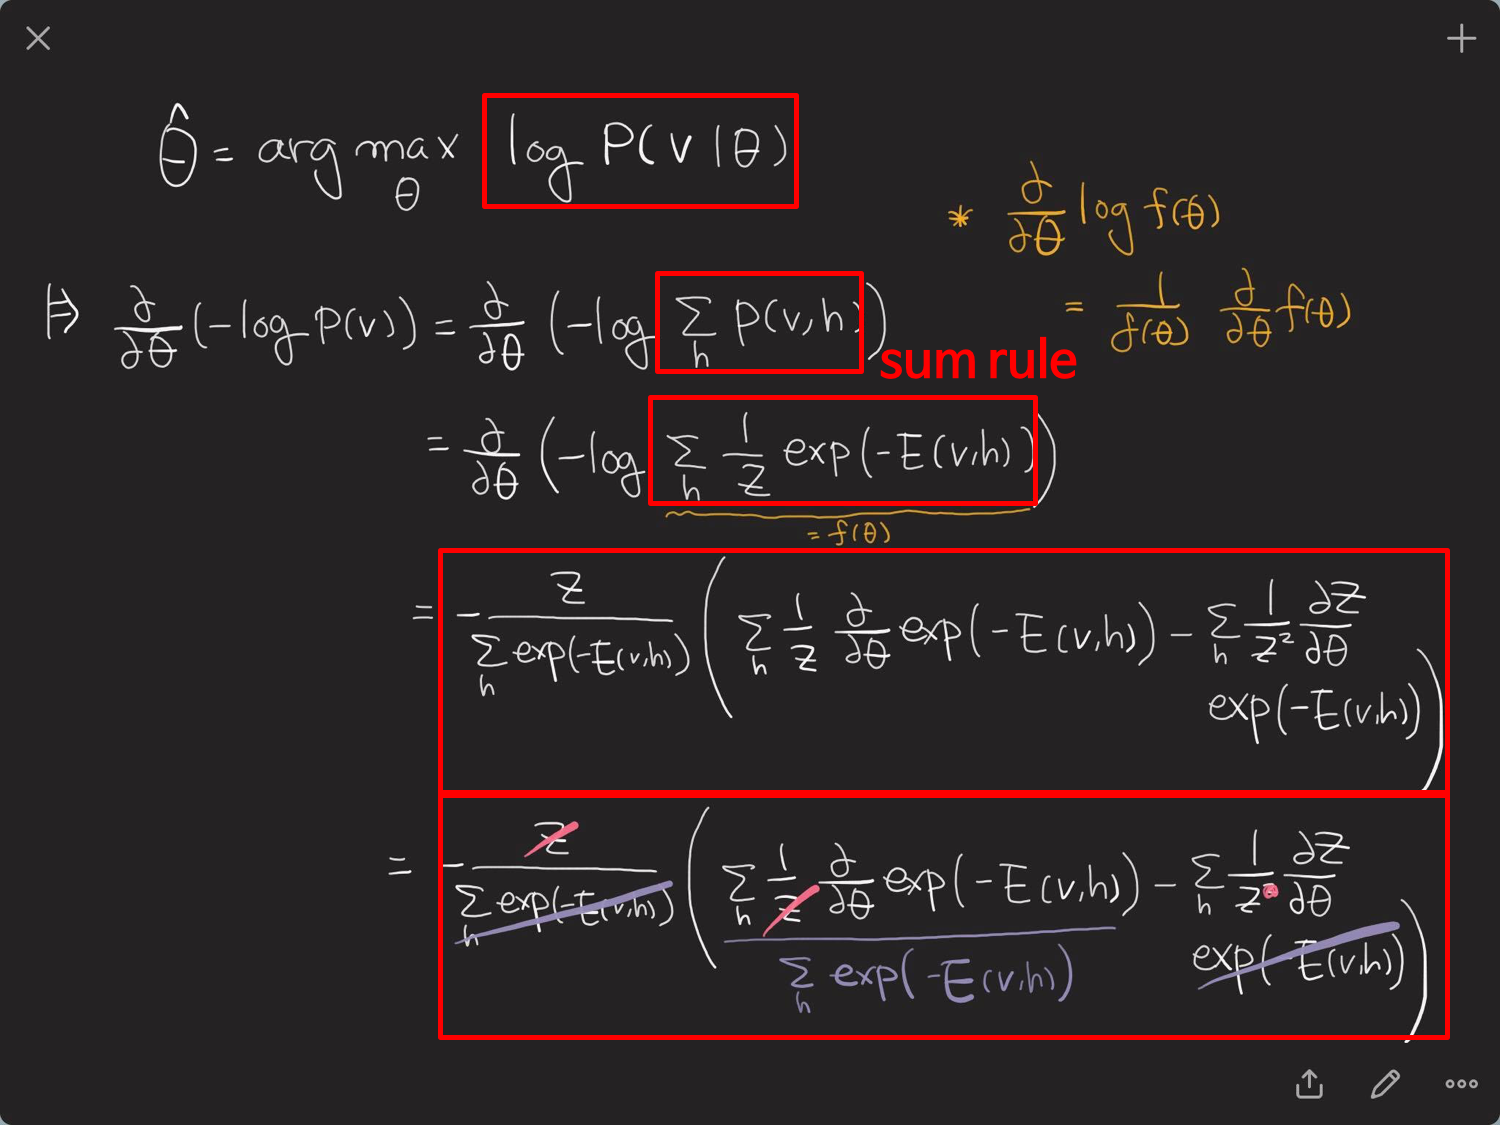 θ̂ = arg max_θ log P(v|θ)
* ∂/∂θ log f(θ)
= 1/f(θ) ∂/∂θ f(θ)
⊨> ∂/∂θ (-log P(v)) = ∂/∂θ (-log Σ_h P(v,h))
sum rule
= ∂/∂θ (-log Σ_h 1/Z exp(-E(v,h)))
= f(θ)
= - Z / Σ_h exp(-E(v,h)) ( Σ_h 1/Z ∂/∂θ exp(-E(v,h)) - Σ_h 1/Z² ∂Z/∂θ
exp(-E(v,h)) )
= - Z / Σ_h exp(-E(v,h)) ( Σ_h 1/Z ∂/∂θ exp(-E(v,h)) - Σ_h 1/Z² ∂Z/∂θ
Σ_h exp(-E(v,h)) exp(-E(v,h)) )